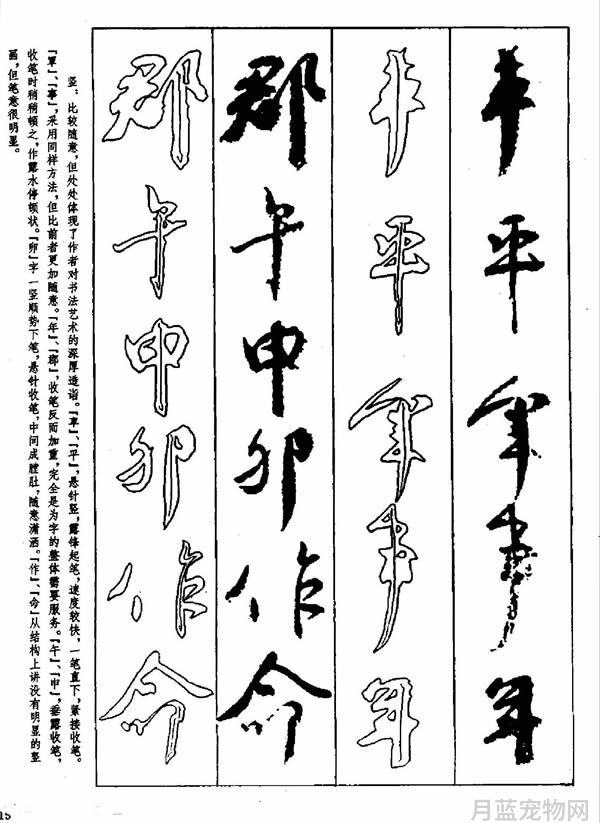 平事年
平事年
郡午申卯作命
郡午申卯作命
竖:比较随意,但处处体现了作者对书法艺术的深厚造诣。『』、『平』,悬针竖,露锋起笔,速度较快,一笔直下,紧接收笔。
『』、『事』,采用同样方法,但比前者更加随意。『年』、『郡』,收笔反而加重,完全是为字的整体需要服务。『午』、『申』,垂露收笔,
收笔时稍稍顿之,作露水停顿状。『卯』字一竖顺势下笔,悬针收笔,中间成膛肚,随意潇洒。『作』、『命』从结构上讲没有明显的竖
画,但笔意很明显。
15
月蓝宠物网